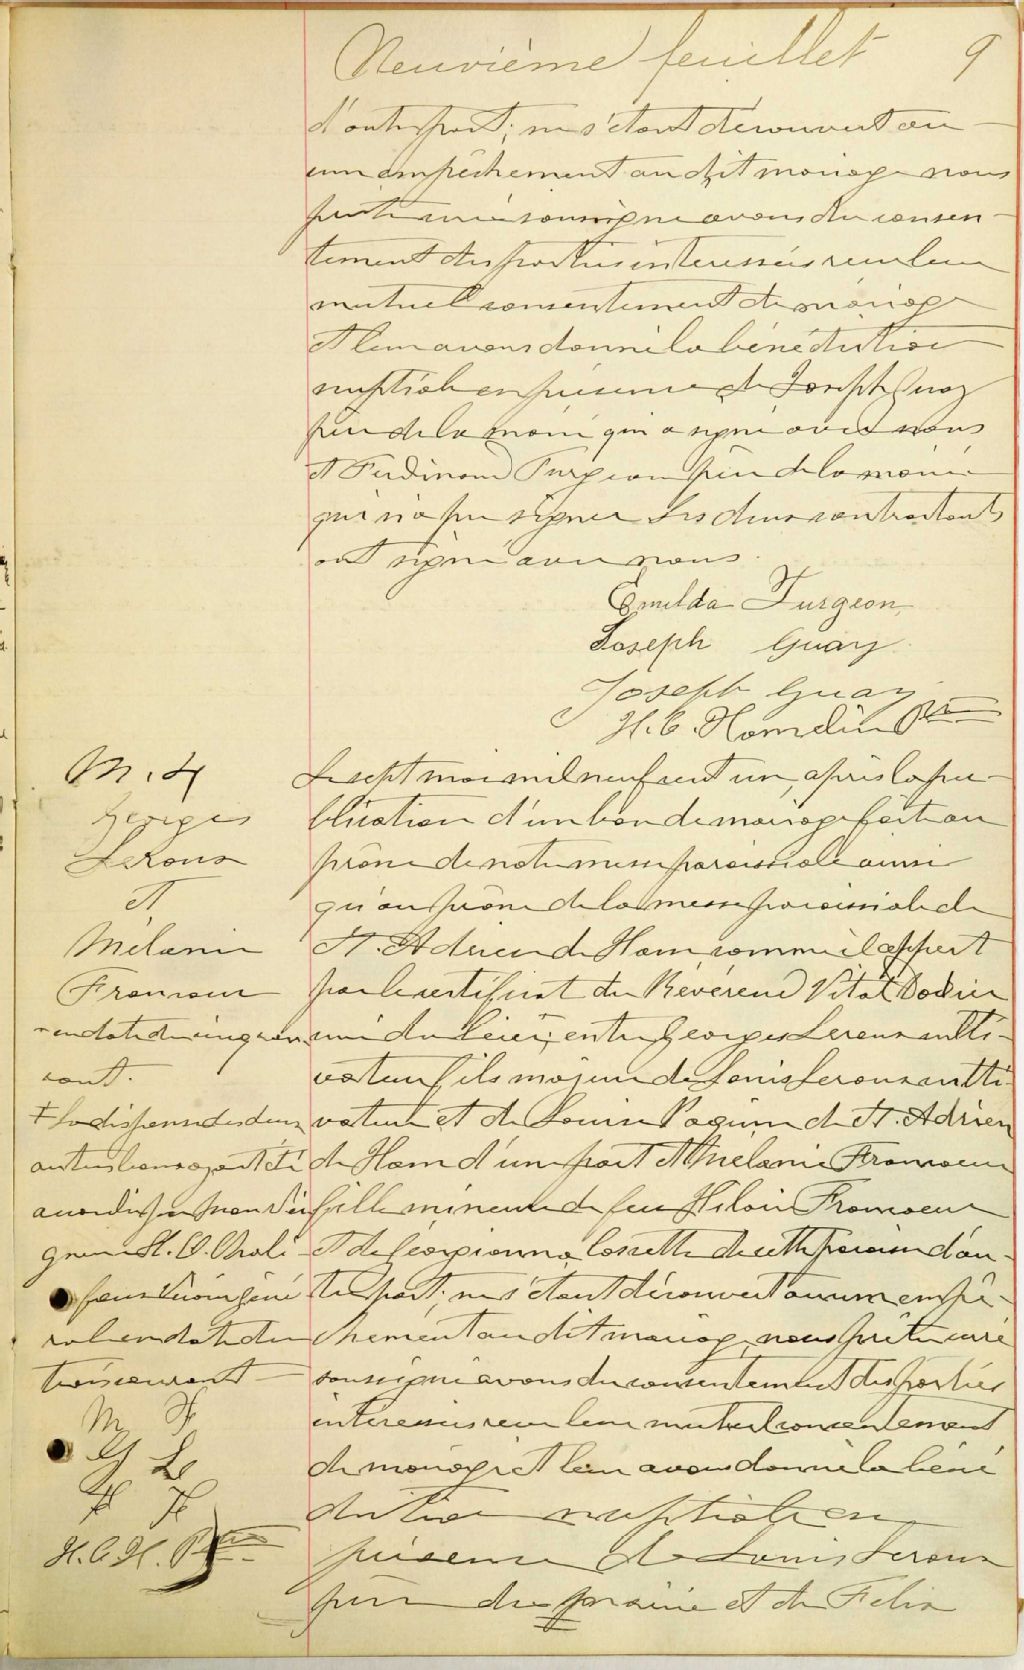 Neuvième feuillet 9
d'autre part; ne s'étant découvert au-
cun empêchement au dit mariage nous
prêtre curé soussigné avons du consen-
tement des parties intéressées reçu leur
mutuel consentement de mariage
et leur avons donné la bénédiction
nuptiale en présence de Joseph Guay
père de la marié qui a signé avec nous
et Ferdinand Turgeon père de la mariée
qui n'a pu signer Les deux contractants
ont signé avec nous.
Emelda Turgeon
Joseph Guay
Joseph Guay
H. C. Hamelin Ptre
M. 4
Georges
LeRoux
et
Mélanie
Francoeur
Le sept mai mil neuf cent un, après la pu-
blication d'un ban de mariage fait au
prône de notre messe paroissiale ainsi
qu'au prône de la messe paroissiale de
St. Adrien de Ham comme il appert
par le certificat du Révérend Vital Bodier
curé du lieu; entre Georges Leroux culti-
vateur fils majeur de Louis Leroux culti-
vateur et de Louise Paquin de St. Adrien
de Ham d'une part et Mélanie Francoeur
fille mineure de feu Hilaire Francoeur
et de Géorgianna Cossette de cette paroisse d'au-
tre part; ne s'étant découvert aucun empê-
chement au dit mariage, nous prêtre curé
soussigné avons du consentement des parties
intéressées reçu leur mutuel consentement
de mariage et leur avons donné la béné
diction nuptiale en
présence de Louis Leroux
père du marié et de Felix
- en date du cinq cou-
rant.
‡ La dispense des deux
autres bans ayant été
accordée par Monsei
gneur H. O. Chali-
foux Vicaire géné
ral en date du
trois courant -
M F
G Le
F F
H. C. H. Ptre